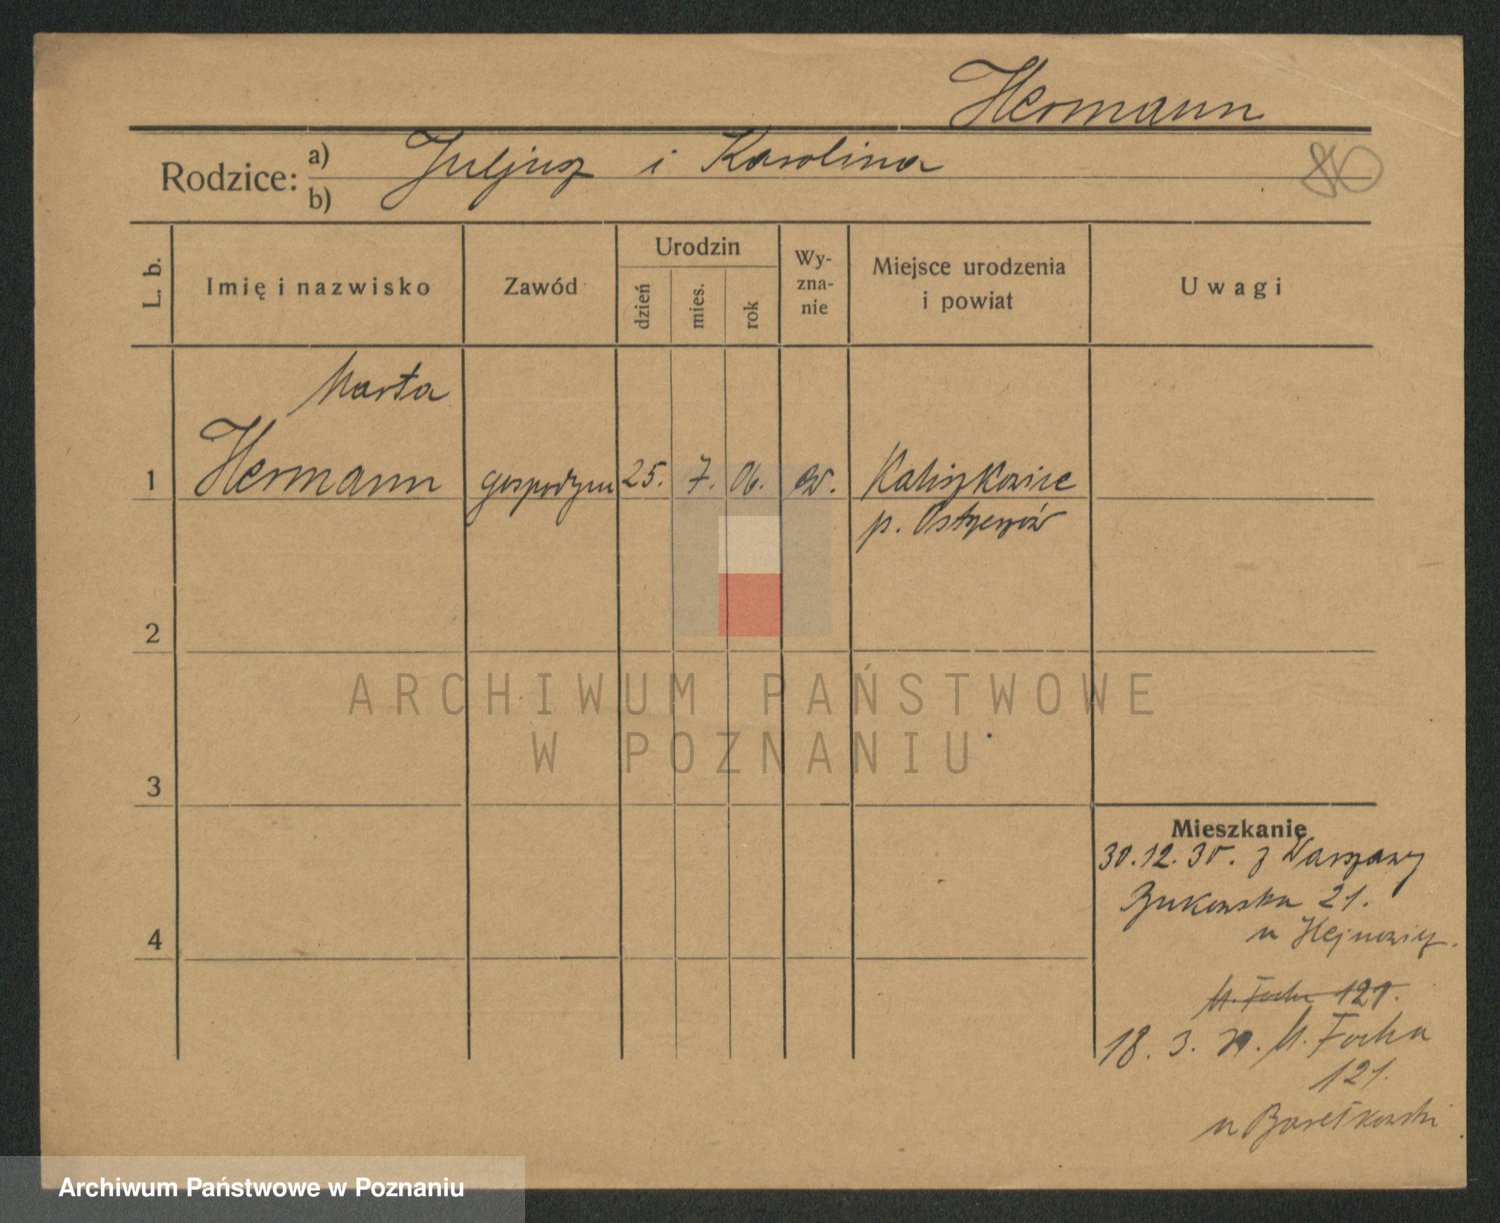 Hermann
Rodzice: a) Juljusz i Karolina
b)
80
L. b.
Imię i nazwisko
Zawód
Urodzin
dzień
mies.
rok
Wy-
zna-
nie
Miejsce urodzenia
i powiat
Uwagi
Marta
1 Hermann gospodyni 25. 7. 06. ew. Kaliszkowice
p. Ostrzeszów
2
3
4
Mieszkanie
30.12.30. z Warszawy
Bukowska 21.
u
M. Focha 121.
18. 3. M. Focha
121.
u
ARCHIWUM PAŃSTWOWE
W POZNANIU
Archiwum Państwowe w Poznaniu